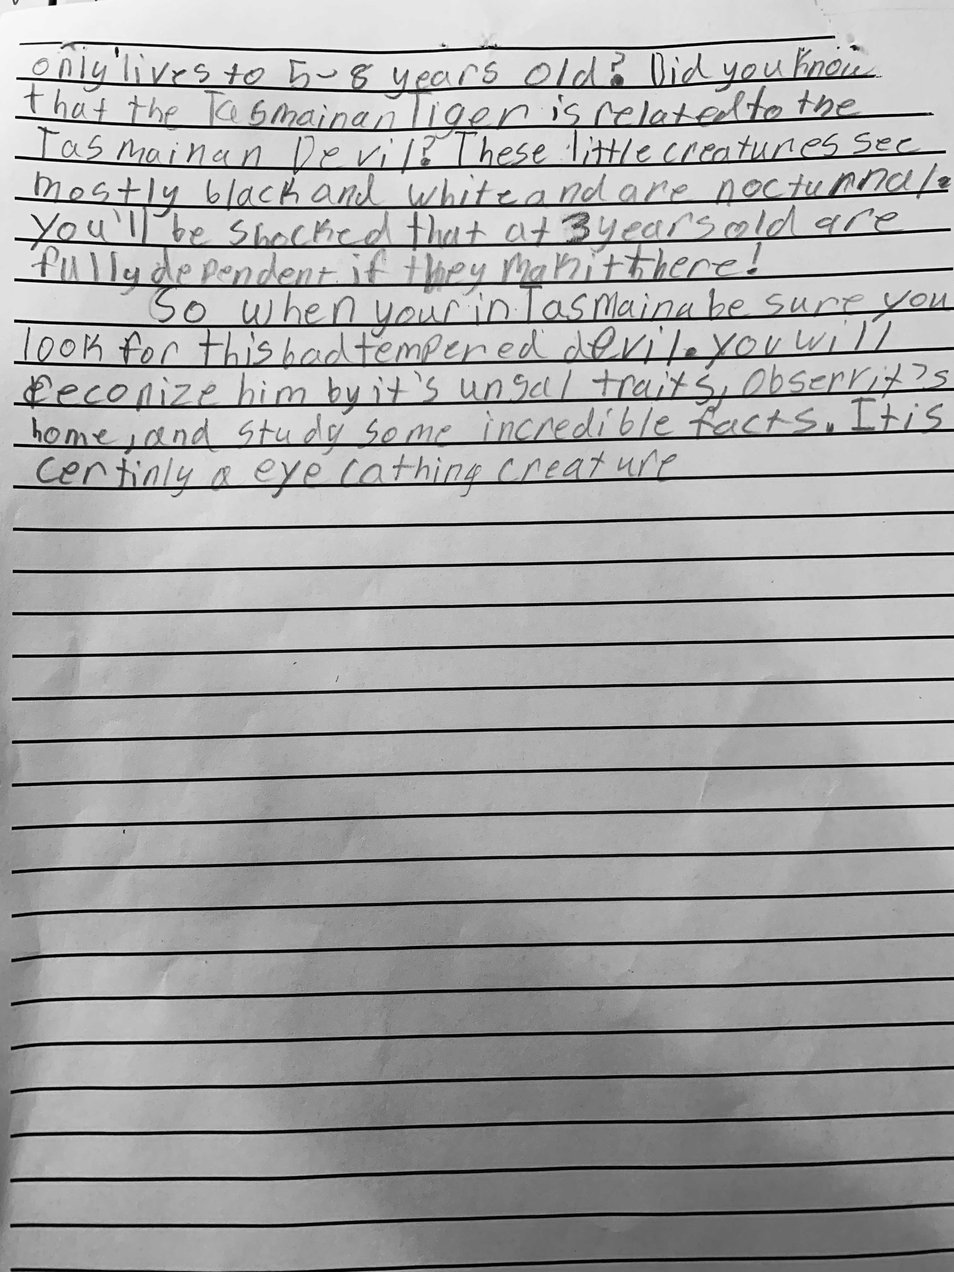 only lives to 5-8 years old? Did you know
that the Tasmainan Tiger is related to the
Tasmainan Devil? These little creatures see
mostly black and white and are nocturnal.
You'll be shocked that at 3 years old are
fully dependent if they makit there!
So when your in Tasmaina be sure you
look for this bad tempered devil. you will
reconize him by it's unsal traits, observ it's
home, and study some incredible facts. It is
certinly a eye cathing creature